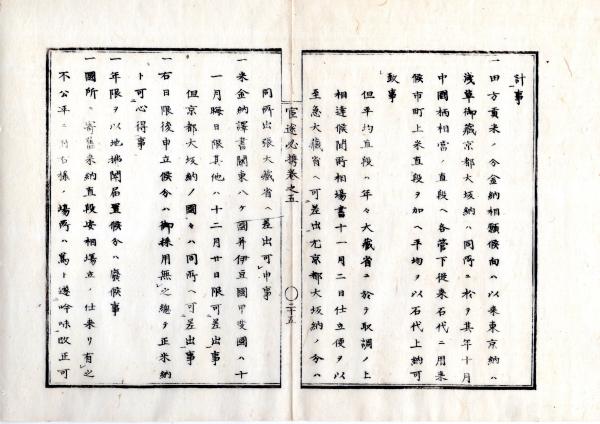 計事
一田方貢米ノ分金納相願候向ハ以来東京納ハ
浅草御蔵京都大坂納ハ同所ニ於テ其年十月
中國柄相當ノ直段ヘ各管下従来石代ニ用来
候市町上米直段ヲ加ヘ平均ヲ以石代上納可
致事
但平均直段ハ年々大蔵省ニ於テ取調ノ上
相達候間所相場書十一月二日仕立便ヲ以
至急大蔵省ヘ可差出尤京都大坂納ノ分ハ
官途必携巻之五
二十五
同所出張大蔵省ヘ差出可申事
一米金納譯書関東八ケ國并伊豆國甲斐國ハ十
一月晦日限其他ハ十二月廿日限可差出事
但京都大坂納ノ國々ハ同所ヘ可差出事
一右日限後申立候分ハ御採用無之總テ正米納
ト可心得事
一年限ヲ以地拂聞届置候分ハ廃候事
一國所ニ寄舊来納直段安相場立ノ仕来リ有之
不公平ニ付右様ノ場所ハ篤ト遂吟味改正可